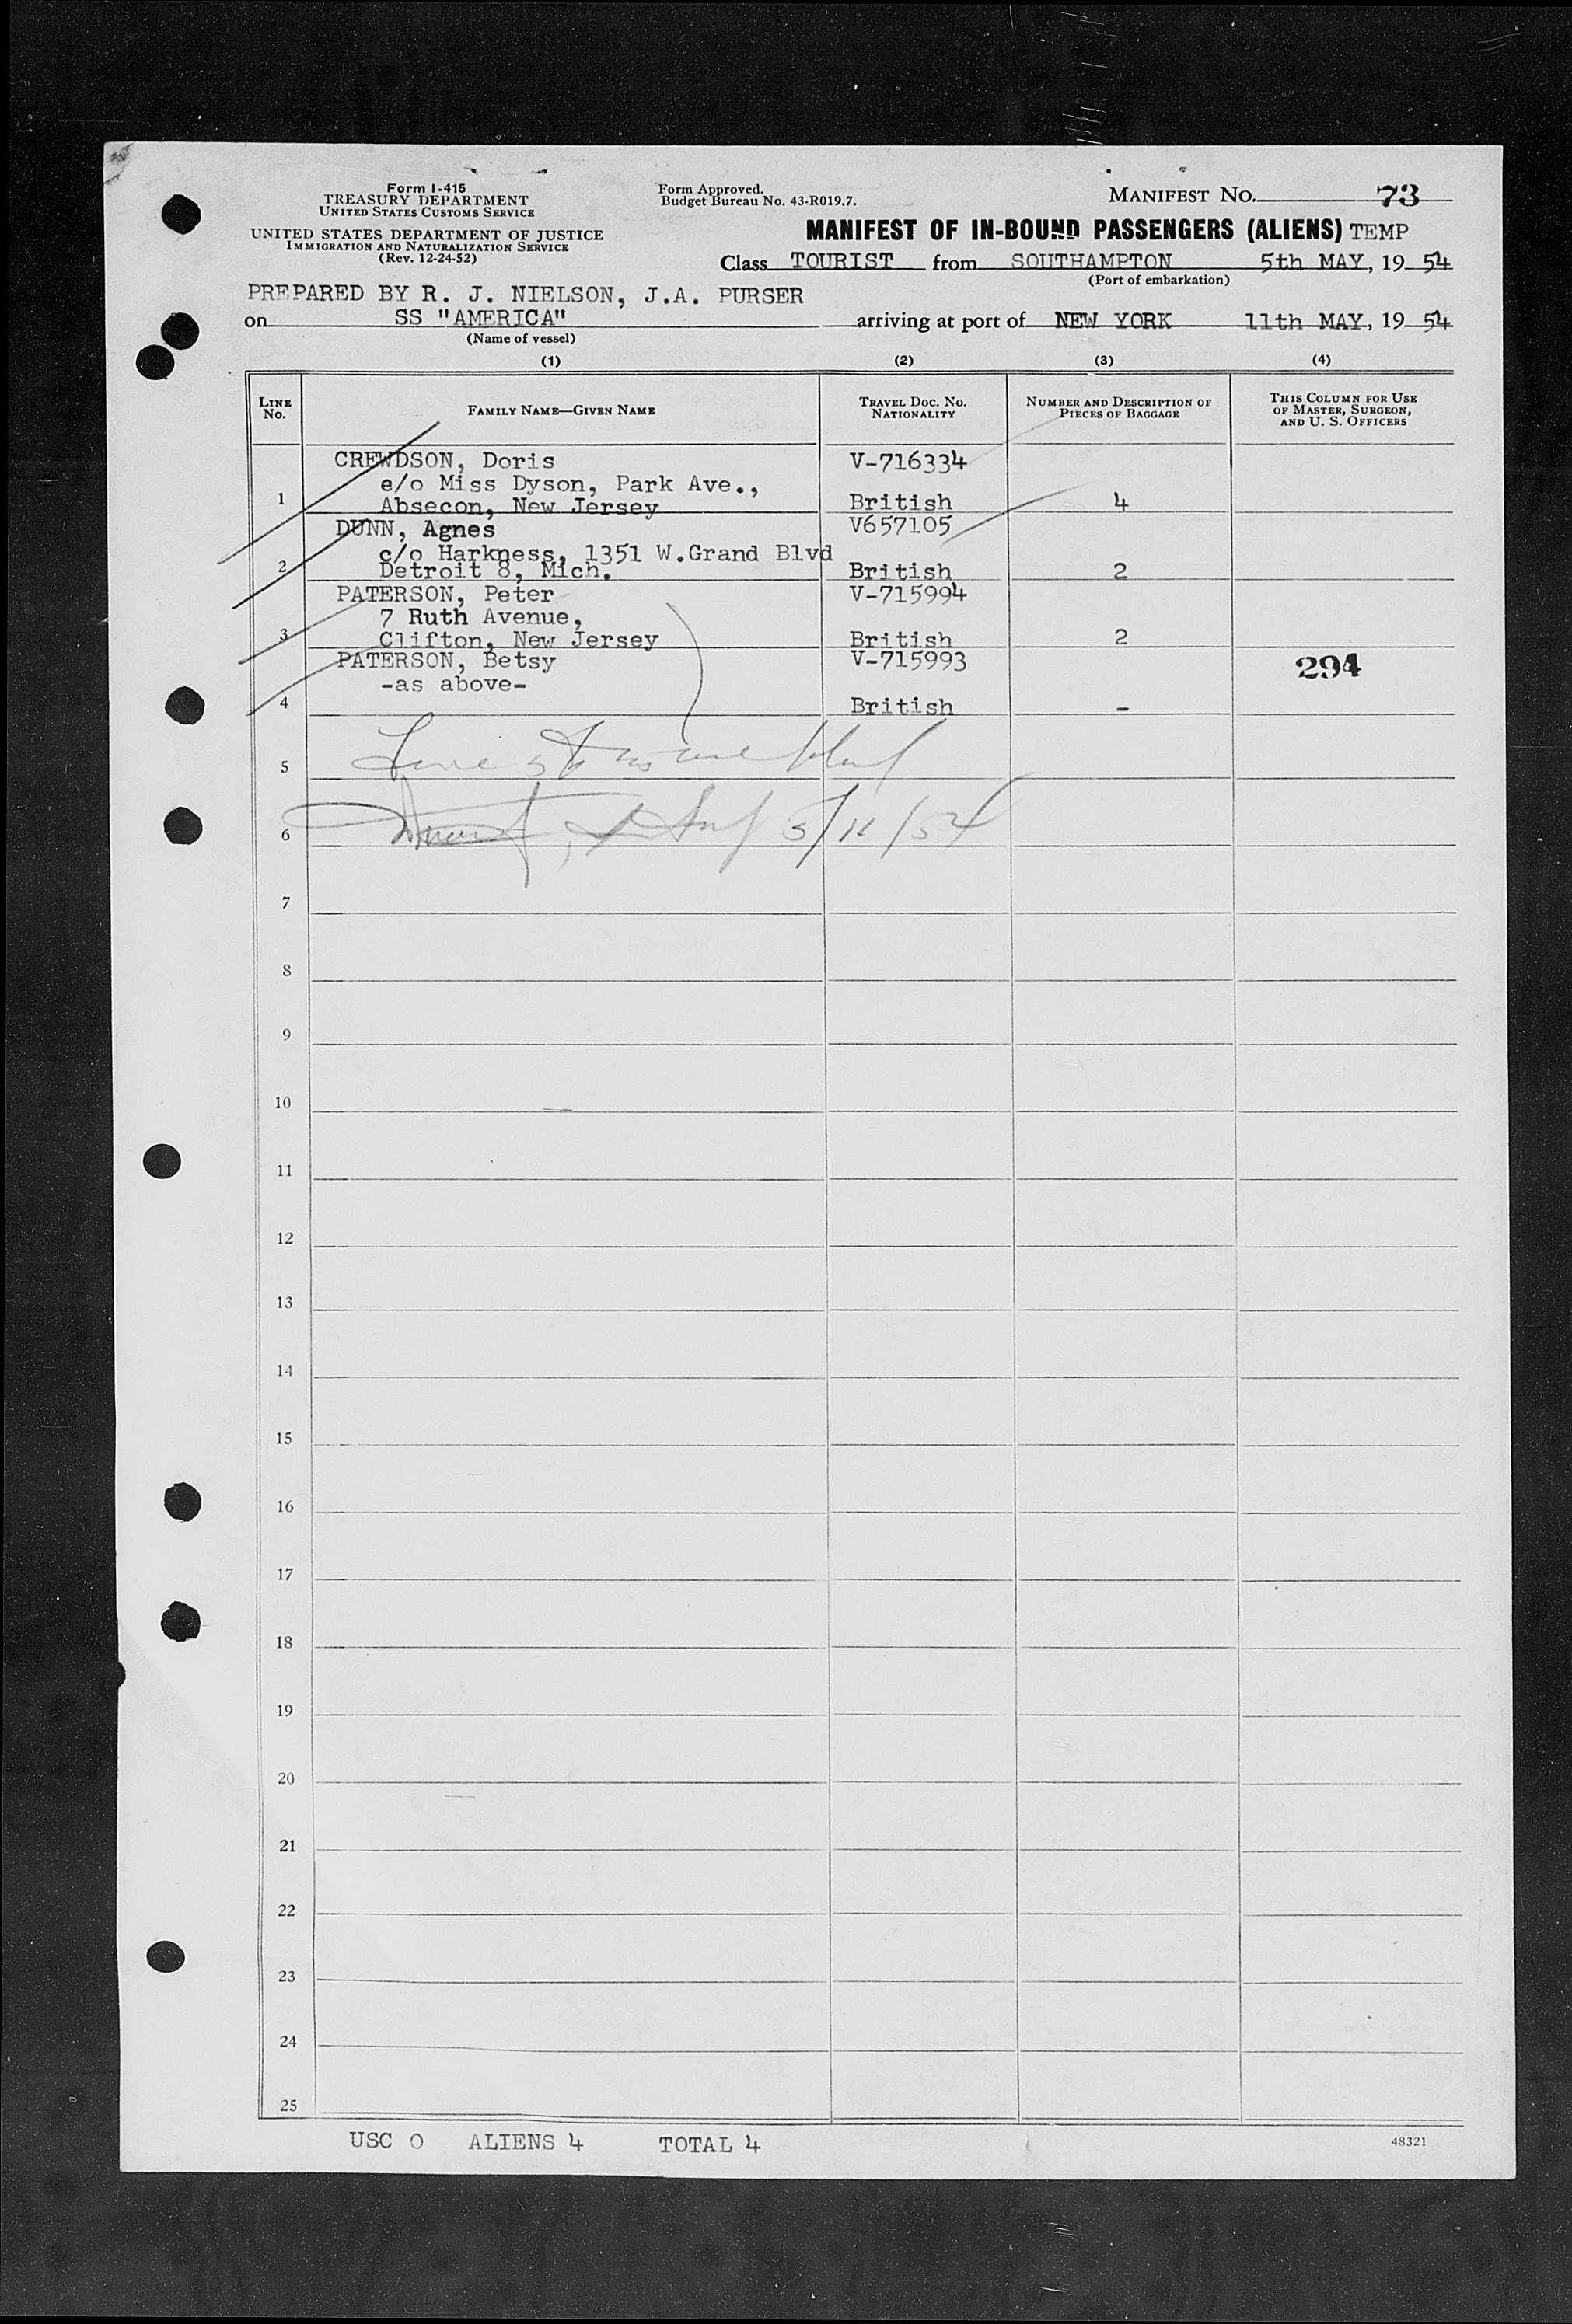 Form I-415
TREASURY DEPARTMENT
UNITED STATES CUSTOMS SERVICE
UNITED STATES DEPARTMENT OF JUSTICE
IMMIGRATION AND NATURALIZATION SERVICE
(Rev. 12-24-52)
Form Approved.
Budget Bureau No. 43-R019.7.
MANIFEST NO. 73
MANIFEST OF IN-BOUND PASSENGERS (ALIENS) TEMP
Class TOURIST from SOUTHAMPTON 5th MAY, 19 54
(Port of embarkation)
PREPARED BY R. J. NIELSON, J.A. PURSER
on SS "AMERICA" arriving at port of NEW YORK 11th MAY, 19 54
(Name of vessel)
(1) (2) (3) (4)
LINE No. FAMILY NAME—GIVEN NAME TRAVEL DOC. NO. NATIONALITY NUMBER AND DESCRIPTION OF PIECES OF BAGGAGE THIS COLUMN FOR USE OF MASTER, SURGEON, AND U. S. OFFICERS
CREWDSON, Doris V-716334
e/o Miss Dyson, Park Ave.,
1 Absecon, New Jersey British 4
DUNN, Agnes V657105
c/o Harkness, 1351 W.Grand Blvd
2 Detroit 8, Mich. British 2
PATERSON, Peter V-715994
7 Ruth Avenue,
3 Clifton, New Jersey British 2
PATERSON, Betsy V-715993 294
-as above-
4 British -
5
6 5/11/54
7
8
9
10
11
12
13
14
15
16
17
18
19
20
21
22
23
24
25
USC 0 ALIENS 4 TOTAL 4
48321